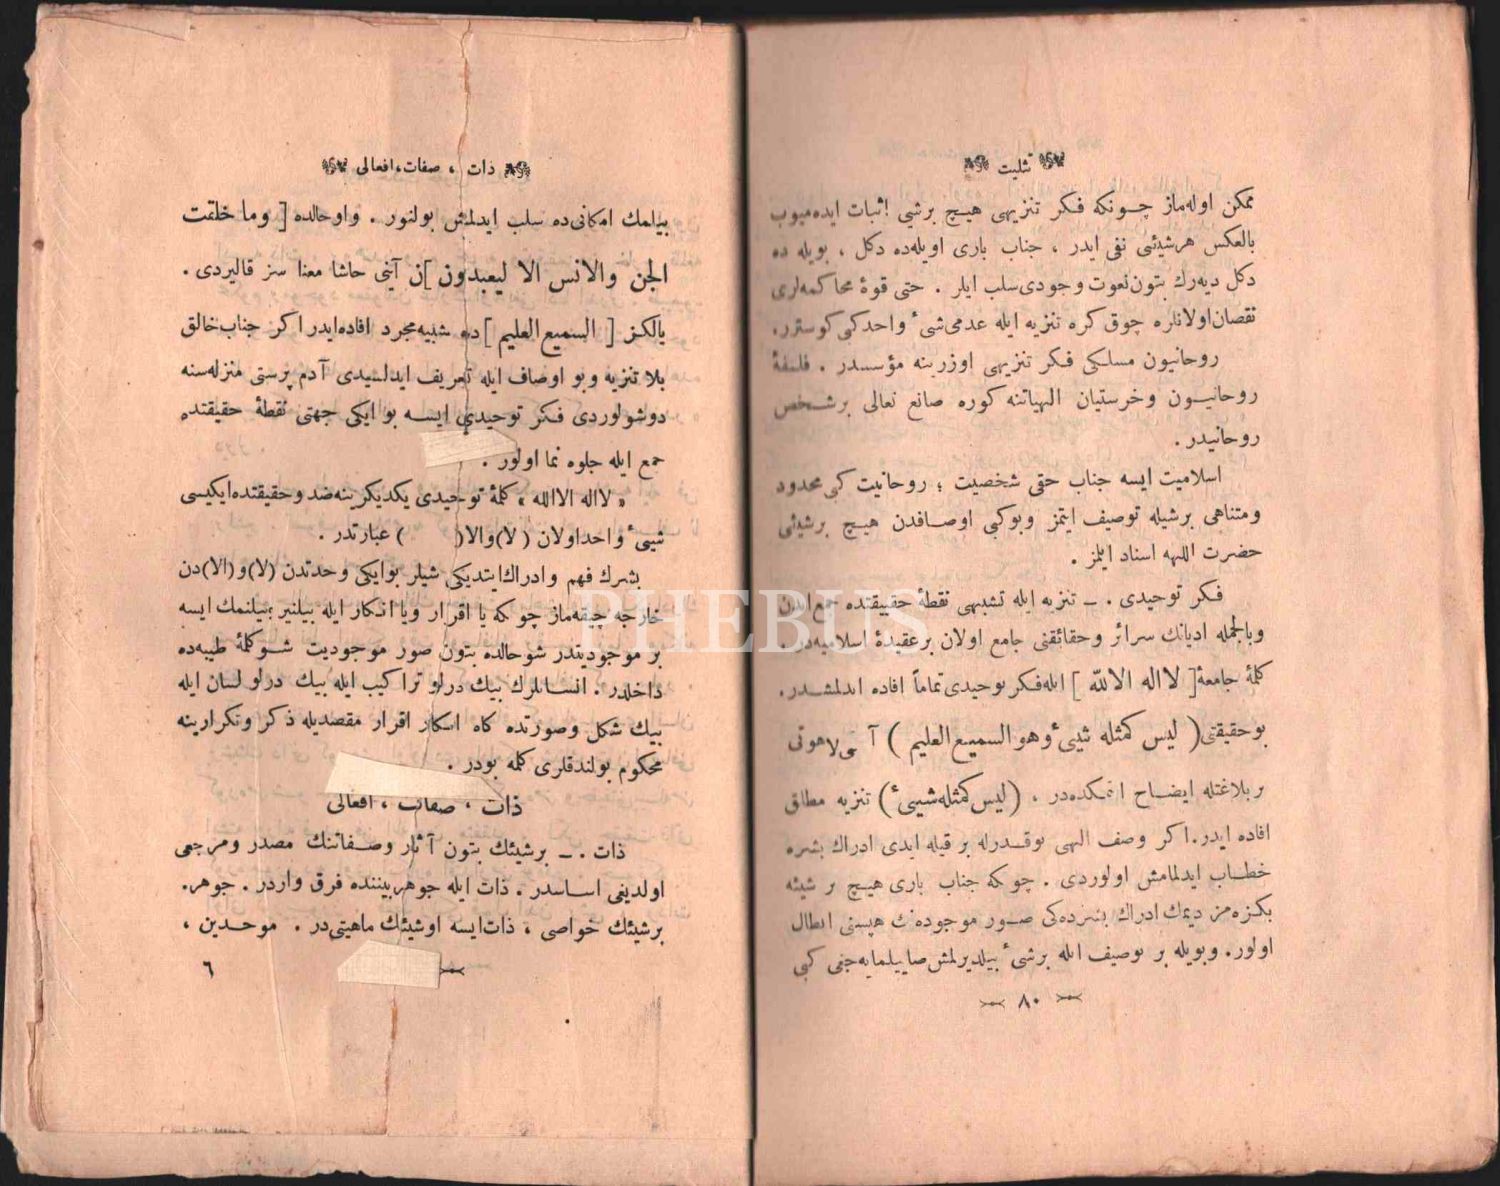 تثلیت
ممكن اوله‌ماز چونكه فكر تنزیهی هیچ برشی اثبات ایده‌میوب
بالعكس هرشیئی نفی ایدر ، جناب باری اویله‌ده دكل ، بویله ده
دكل دیه‌رك بتون نعوت وجودی سلب ایلر . حتی قوۀ محاكمه‌لری
نقصان اولانلره چوق كره تنزیه ایله عدمی شیء واحد كبی كوسترر.
روحانیون مسلكی فكر تنزیهی اوزرینه مؤسسدر . فلسفۀ
روحانیون وخرستیان الهیاتنه كوره صانع تعالی برشخص
روحانیدر .
اسلامیت ایسه جناب حقی شخصیت ؛ روحانیت كبی محدود
ومتناهی برشیله توصیف ایتمز وبوكبی اوصافدن هیچ برشیئی
حضرت اللهه اسناد ایلمز .
فكر توحیدی . ــ تنزیه ایله تشبیهی نقطۀ حقیقتده جمع ایدن
وبالجمله ادیانك سرائر وحقائقنی جامع اولان برعقیدۀ اسلامیه‌در .
كلۀ جامعۀ [ لااله الاالله ] ایله فكر توحیدی تماماً افاده ایدلمشدر .
بوحقیقتی ( لیس كمثله شیئ وهو السمیع العلیم ) آیتی لاهوتی
بربلاغتله ایضاح اتمكده‌در . ( لیس كمثله شییء ) تنزیه مطلق
افاده ایدر . اكر وصف الهی بوقدرله برقیله ایدی ادراك بشره
خطاب ایدلمامش اولوردی . چونكه جناب باری هیچ بر شیئه
بكزه‌مز دیمك ادراك بشرده‌كی صور موجوده‌نك هپسنی ابطال
اولور . وبویله بر توصیف ایله برشیء بیلدیرلمش صاییلمایه‌جغی كبی
٨٠
ذات ، صفات ، افعالی
بیلمك امكانی‌ده سلب ایدلمش بولنور . واوحالده [ وما خلقت
الجن والانس الا لیعبدون ] ن آیتی حاشا معنا سز قالیردی .
یالكز [ السمیع العلیم ] ده شبیه مجرد افاده ایدر اكر جناب خالق
بلا تنزیه وبو اوصاف ایله تعریف ایدلسیدی آدم پرستی منزله‌سنه
دوشولوردی فكر توحیدی ایسه بو ایكی جهتی نقطۀ حقیقتده
جمع ایله جلوه نما اولور .
« لااله الاالله » كلۀ توحیدی یكدیكرینه ضد وحقیقتده ایكیسی
شیئ واحد اولان ( لا ) والا ( ) عبارتدر .
بشرك فهم وادراك ایتدیكی شیلر بوایكی وحدتدن (لا) و (الا) دن
خارجه چیقه‌ماز چونكه یا اقرار ویا انكار ایله بیلنیر بیلنمك ایسه
بر موجودیتدر شوحالده بتون صور موجودیت شو كلۀ طیبه‌ده
داخلدر . انسانلرك بیك درلو تراكیب ایله بیك درلو لسان ایله
بیك شكل وصورتده كاه انكار اقرار مقصدیله ذكر وتكرارینه
محكوم بولندقلری كله بودر .
ذات ، صفات ، افعالی
ذات . ــ برشیئك بتون آثار وصفاتنك مصدر ومرجعی
اولدیغی اساسدر . ذات ایله جوهر بیننده فرق واردر . جوهر.
برشیئك خواصی ، ذات ایسه اوشیئك ماهیتی‌در . موحدین ،
٦
PHEBUS